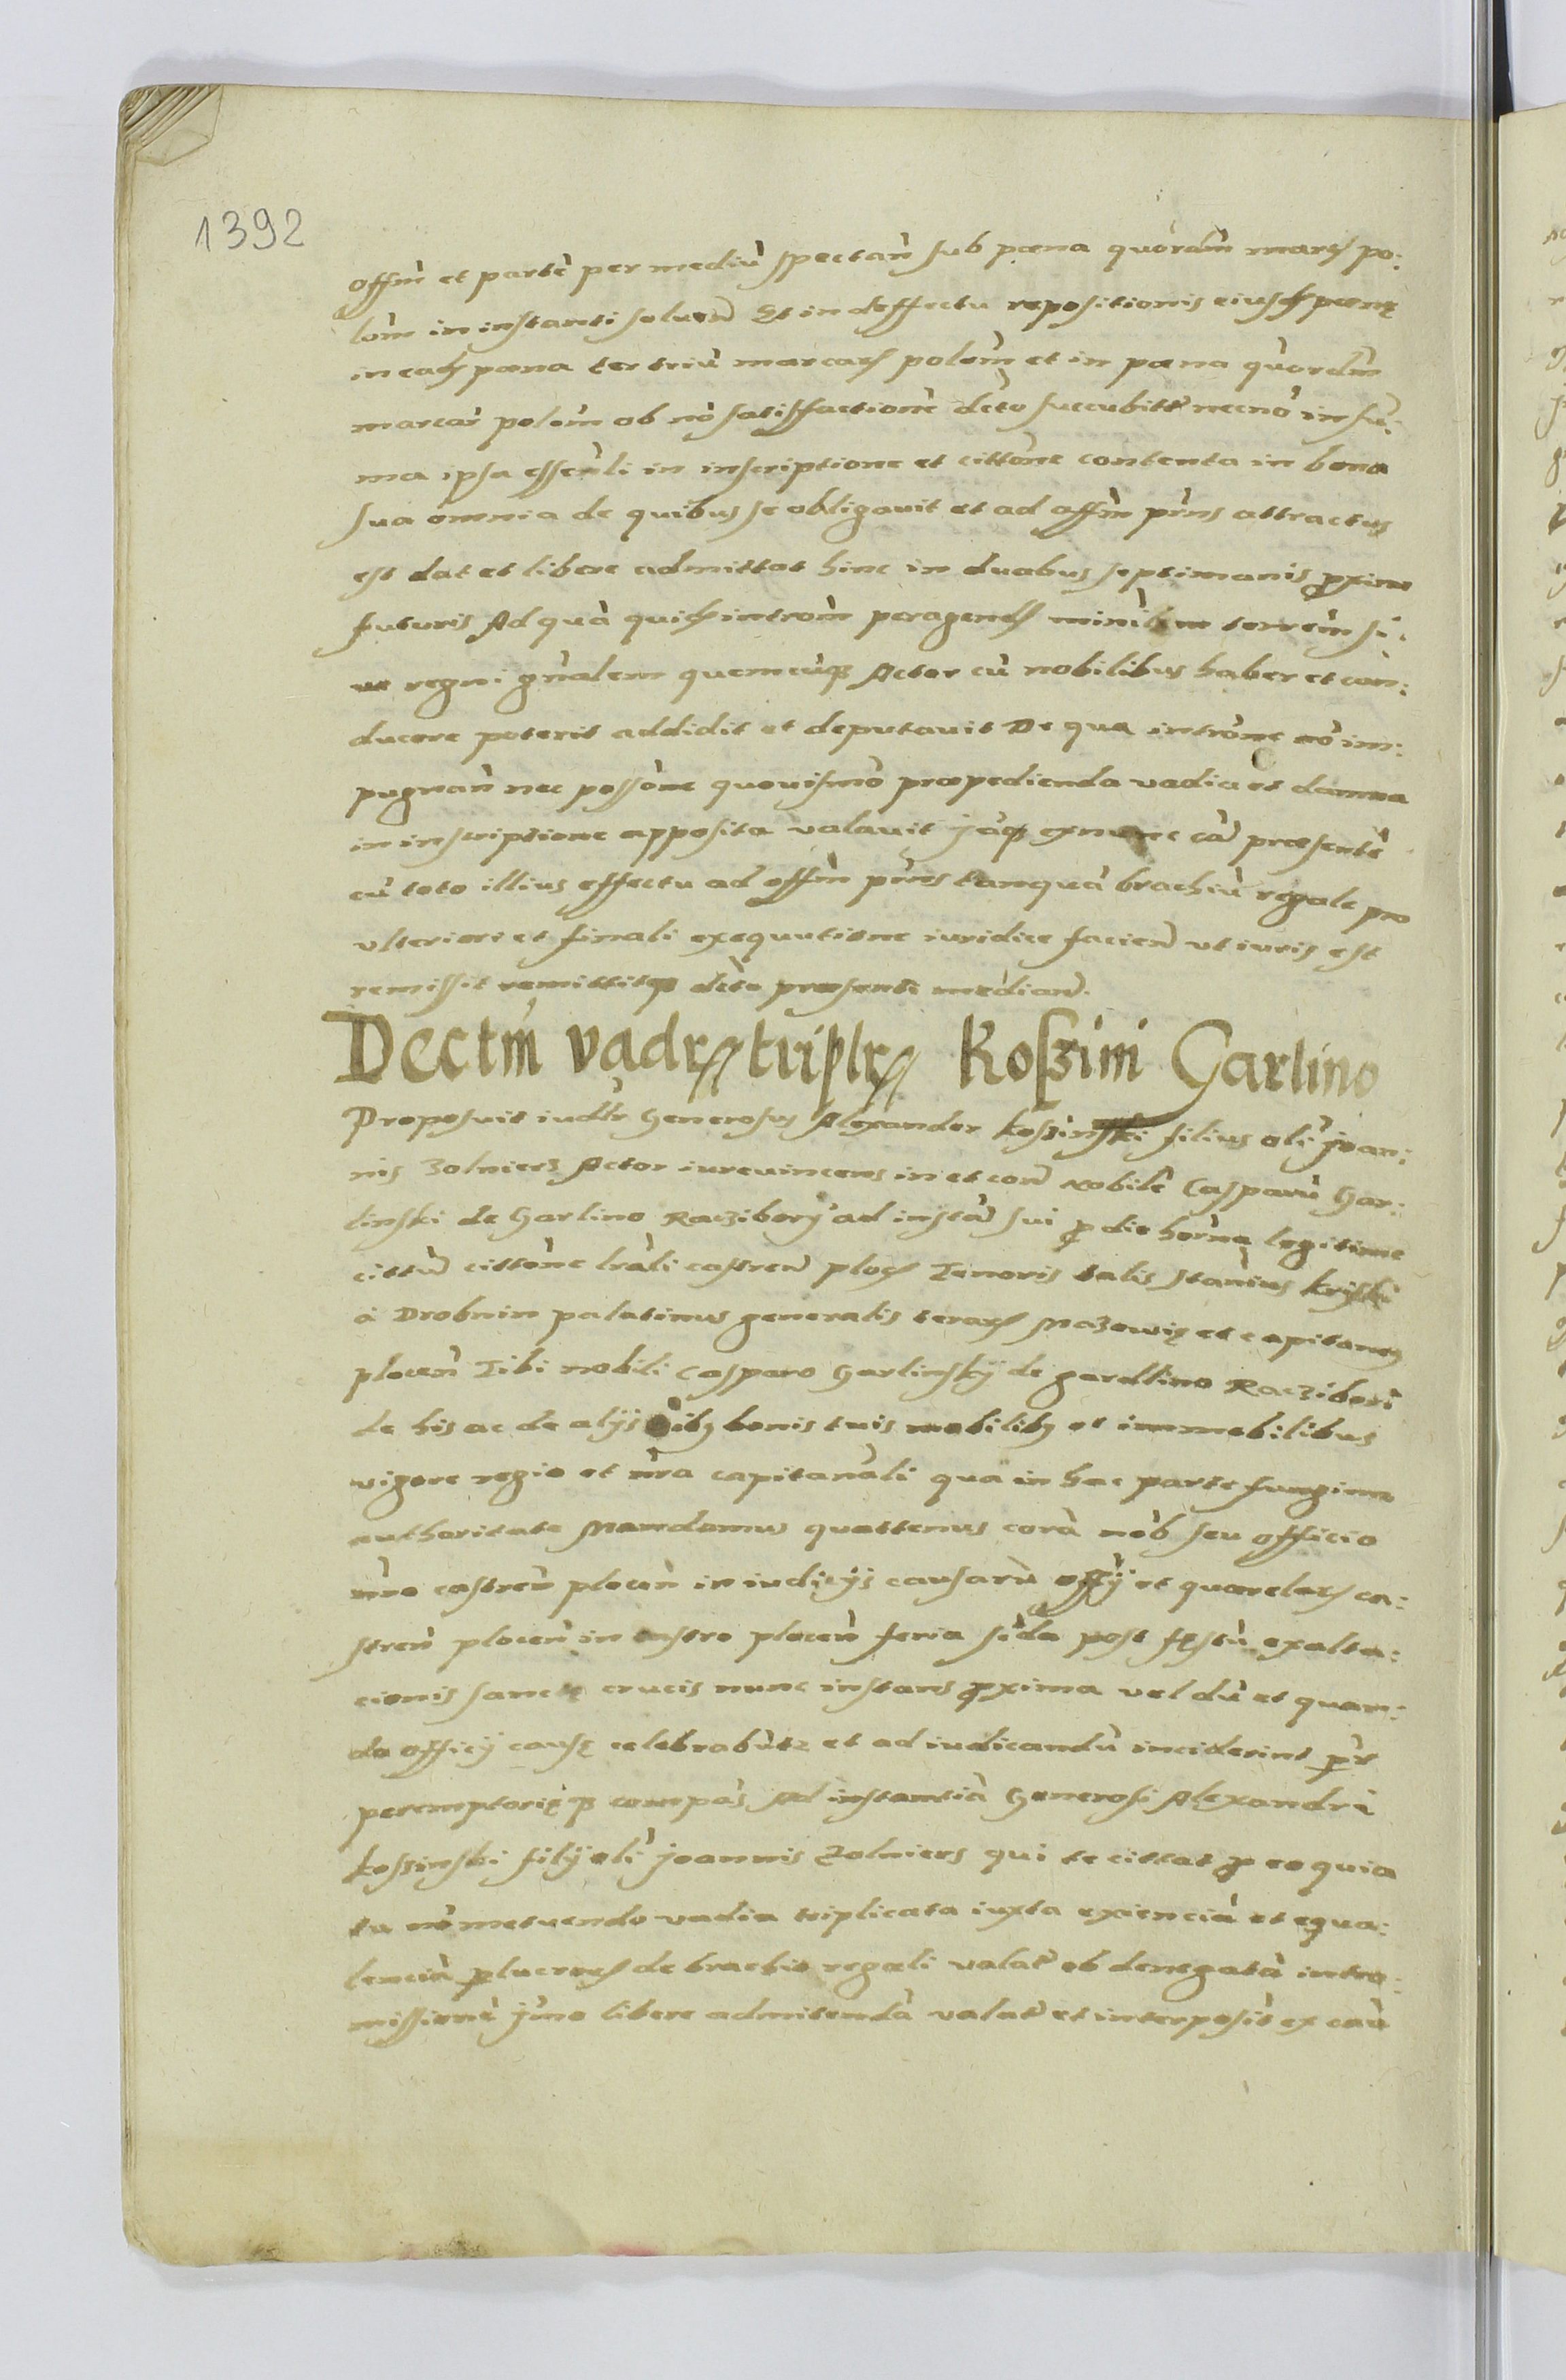 1392
offm̃ et partē per mediū spectañ sub pœna quordm̃ marcę po:
lom̃ in instanti solueñ Et in deffectu repositionis eiusdę pœnę
in eadę pœna ter triū marcarę polom̃ et in pœna quordm̃
marcar̃ polom̃ ob nō satisffactionē dcto succubitt̃ necnō in su:
ma ipsa essenłi in inscriptione et cittōne contenta in bona
sua omnia de quibus se obligauit et ad offm̃ prñs attractus
est dat et libere admittat hinc in duabus septimanis proxime
futuris Ad quā quidę introm̃ peragendę terrem̃ si:
ue regni gñalem quemcunqȝ Actor cū nobilibus haber et con:
ducere poterit addidit et deputauit De qua intrōne nō im:
pugnañ nec possōne quouismō præpedienda vadia et damna
in inscriptione apposita valauit jāqȝ exnunc cām̃ præsentē
cū toto illius effectu ad offm̃ prñs tanquā brachiū regale pro
vlteriori et finali exequutione iuridice facień vt iuris est
remissit remittitqȝ dcto præsenti mediañ.
Dectm̃ vadrę triplrę Koßini Garlino
Proposuit iudłr Generosus Alexander Koßinski filius oli Joan:
nis Zolnierz Actor iureuincens in et coñ nobilē Casparū Gar:
linski de Garlino Racziborÿ ad instāñ sui p̱ die herna legitime
cittū cittōne lrāli castreñ plocę Tenoris talis Stanius Kryski
à Drobnin palatinus generalis terarę Mazowię et capitaneus
ploceñ Tibi nobili Casparo Garlinskÿ de garellino Raczibori
de his ac de alijs oibȝ bonis tuis mobilibȝ et immobilibus
vigore regio et nr̃a capitanāli qua in hac parte fungimr
authoritate Mandamus quattenus corā nob̃ seu officio
nr̃o castreñ ploceñ in iudicijs causarū offÿ et querelarę ca:
streñ ploceñ in castro ploceñ feria sc̃da post fęstū exalta:
cionis sanctę crucis nunc instans p̱xima vel dū et quan:
do officÿ causę celebrabūtz et ad iudicandū inciderint pr̃
peremptorięqȝ compās Ad instantiā Generosi Alexandri
Koßinski filÿ oli Joannis Zolniers qui te cittat p̱ eo quia
tu nō metuendo vadia triplicata iuxta exienciā et equa:
lenciā p̱lucrarę de brachio regali valat̃ ob denegatā intro:
missionē jm̃o libere admitendā valat̃ et interposit̃ ex cāū